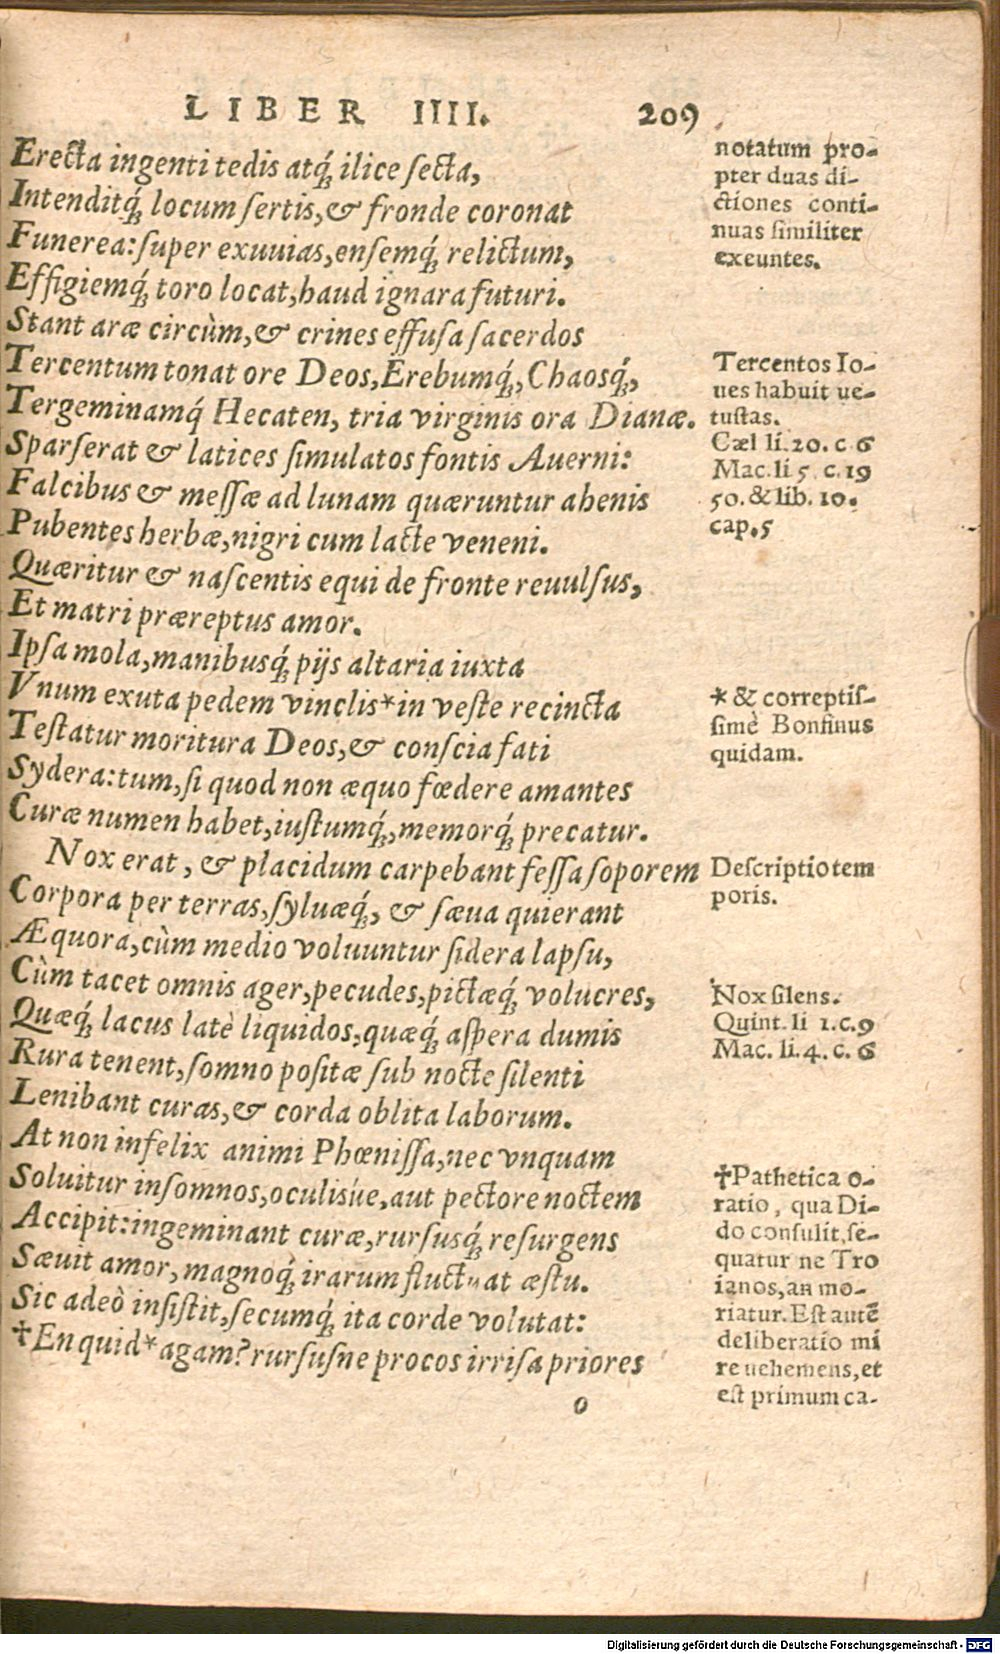 LIBER IIII. 209
Erecta ingenti tedis atq́; ilice secta,
Intenditq́; locum sertis, & fronde coronat
Funerea: super exuuias, ensemq́; relictum,
Effigiemq́; toro locat, haud ignara futuri.
Stant aræ circùm, & crines effusa sacerdos
Tercentum tonat ore Deos, Erebumq́;, Chaosq́;,
Tergeminamq́; Hecaten, tria virginis ora Dianæ.
Sparserat & latices simulatos fontis Auerni:
Falcibus & messæ ad lunam quæruntur ahenis
Pubentes herbæ, nigri cum lacte veneni.
Quæritur & nascentis equi de fronte reuulsus,
Et matri præreptus amor.
Ipsa mola, manibusq́; pijs altaria iuxta
Vnum exuta pedem vinclis* in veste recincta
Testatur moritura Deos, & conscia fati
Sydera: tum, si quod non æquo fœdere amantes
Curæ numen habet, iustumq́;, memorq́; precatur.
Nox erat, & placidum carpebant fessa soporem
Corpora per terras, syluæq́;, & sæua quierant
Æquora, cùm medio voluuntur sidera lapsu,
Cùm tacet omnis ager, pecudes, pictæq́; volucres,
Quæq́; lacus latè liquidos, quæq́; aspera dumis
Rura tenent, somno positæ sub nocte silenti
Lenibant curas, & corda oblita laborum.
At non infelix animi Phœnissa, nec vnquam
Soluitur in somnos, oculisúe, aut pectore noctem
Accipit: ingeminant curæ, rursusq́; resurgens
Sæuit amor, magnoq́; irarum fluctuat æstu.
Sic adeò insistit, secumq́; ita corde volutat:
†En quid* agam? rursusne procos irrisa priores
o
notatum pro-
pter duas di-
ctiones conti-
nuas similiter
exeuntes.
Tercentos Io-
ues habuit ue-
tustas.
Cæl li. 20. c 6
Mac. li 5 c. 19
50. & lib. 10.
cap. 5
* & correptis-
simè Bonfinus
quidam.
Descriptio tem
poris.
Nox silens.
Quint. li 1. c. 9
Mac. li. 4. c. 6
†Pathetica o-
ratio, qua Di-
do consulit, se-
quatur ne Tro
ianos, an mo-
riatur. Est autē
deliberatio mi
re uehemens, et
est primum ca-
Digitalisierung gefördert durch die Deutsche Forschungsgemeinschaft - DFG